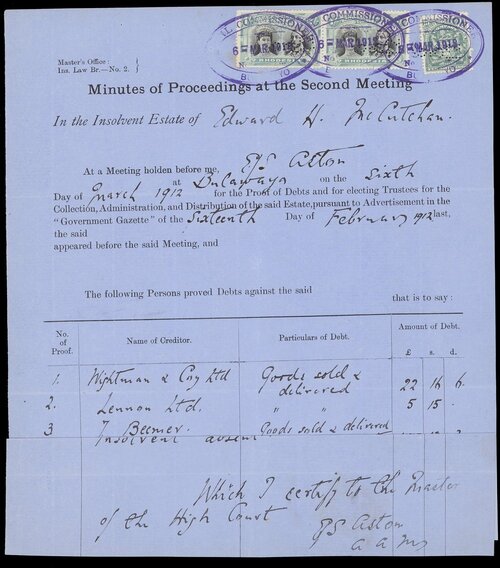 Master's Office:
Ins. Law Br.—No. 2.
COMMISSIONER
6 - MAR 1912
COMMISSIONER
6 - MAR 1912
COMMISSIONER
MAR 1912
RHODESIA
Minutes of Proceedings at the Second Meeting
In the Insolvent Estate of Edward H. McCutchan.
At a Meeting holden before me, E.S. Aston
at Bulawayo on the Sixth
Day of March 1912 for the Proof of Debts and for electing Trustees for the
Collection, Administration, and Distribution of the said Estate, pursuant to Advertisement in the
"Government Gazette" of the Sixteenth Day of February 1912 last,
the said
appeared before the said Meeting, and
The following Persons proved Debts against the said that is to say:
No. of Proof. Name of Creditor. Particulars of Debt. Amount of Debt.
£ s. d.
1. Wightman & Coy Ltd Goods sold & delivered 22 16 6.
2. Lennon Ltd. " " 5 15 -
3 J Beemer. Goods sold & delivered
Insolvent absent
Which I certify to the Master
of the High Court
E S Aston
a a m